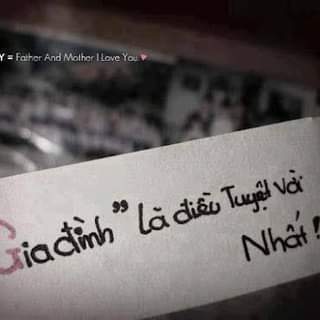 Y = Father And Mother I Love You ♥
Gia đình” là điều Tuyệt Vời
Nhất !